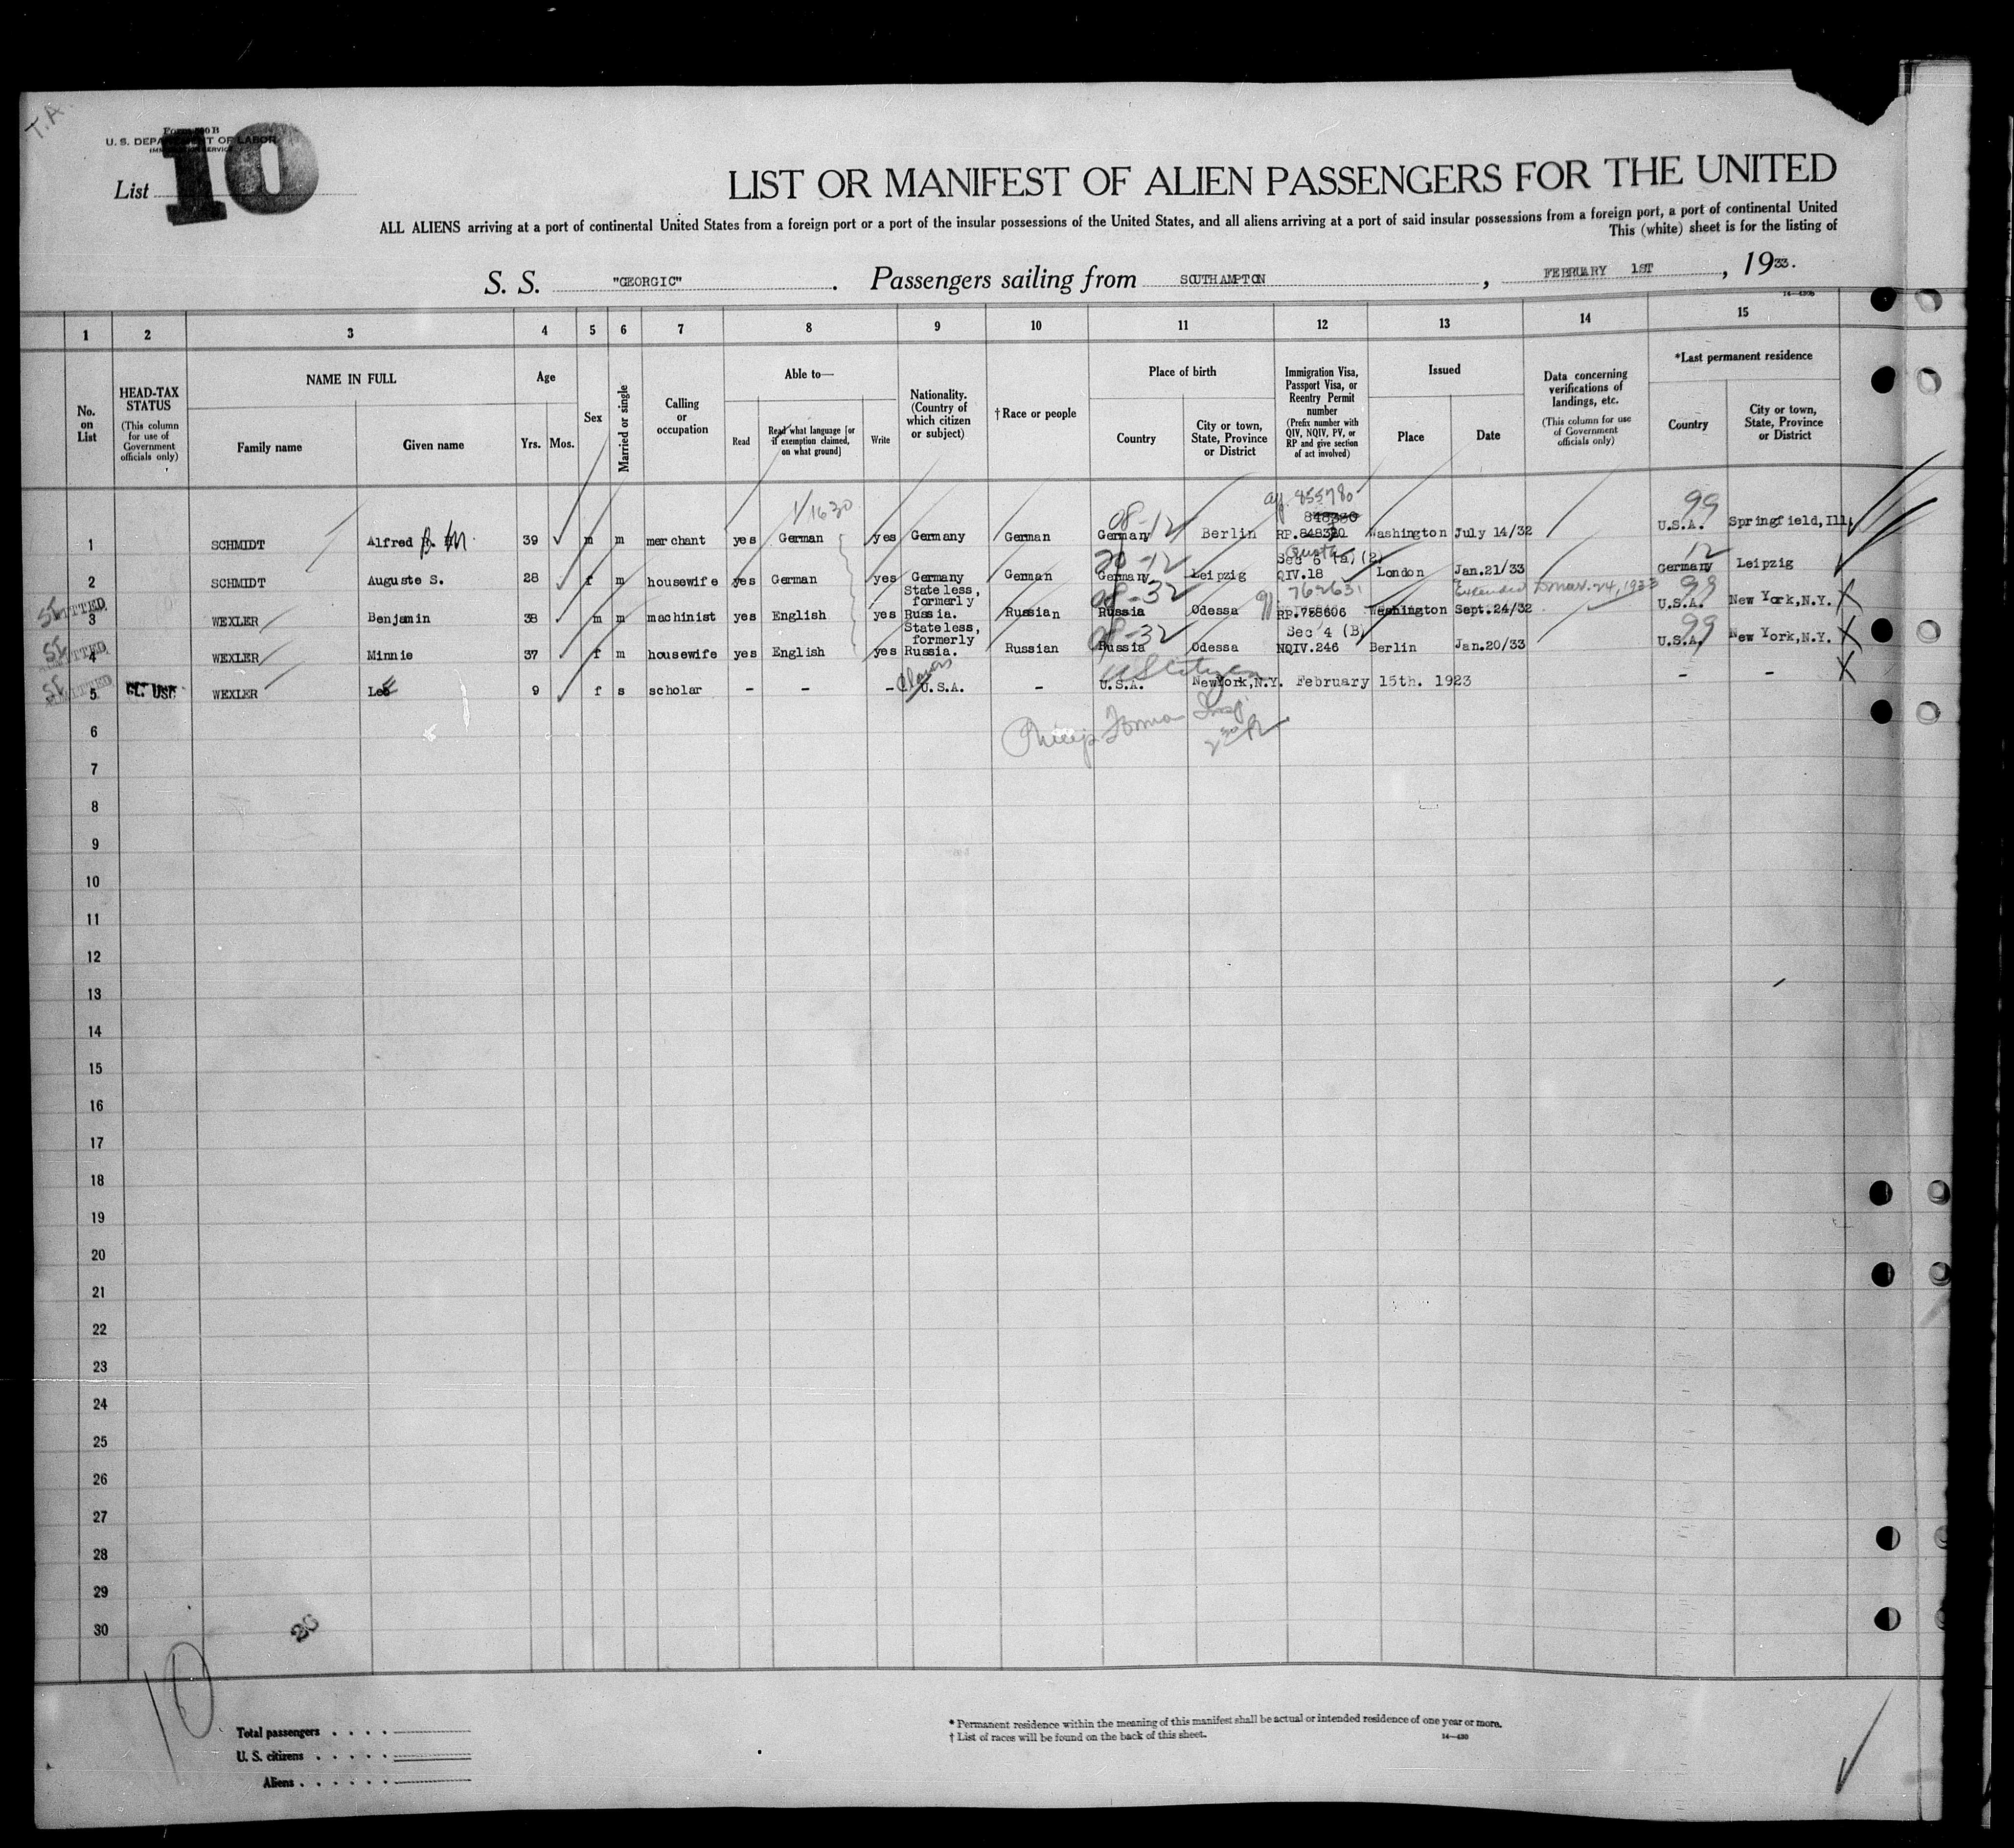 T.A.
Form 500 B
U. S. DEPARTMENT OF LABOR
IMMIGRATION SERVICE
List 10
LIST OR MANIFEST OF ALIEN PASSENGERS FOR THE UNITED
ALL ALIENS arriving at a port of continental United States from a foreign port or a port of the insular possessions of the United States, and all aliens arriving at a port of said insular possessions from a foreign port, a port of continental United
This (white) sheet is for the listing of
S. S. "GEORGIC". Passengers sailing from SOUTHAMPTON, FEBRUARY 1ST, 1933.
14—430B
1 2 3 4 5 6 7 8 9 10 11 12 13 14 15
No. on List
HEAD-TAX STATUS (This column for use of Government officials only)
NAME IN FULL
Family name Given name
Age
Yrs. Mos.
Sex
Married or single
Calling or occupation
Able to—
Read Read what language [or if exemption claimed, on what ground] Write
Nationality. (Country of which citizen or subject)
†Race or people
Place of birth
Country City or town, State, Province or District
Immigration Visa, Passport Visa, or Reentry Permit number (Prefix number with QIV, NQIV, PV, or RP and give section of act involved)
Issued
Place Date
Data concerning verifications of landings, etc. (This column for use of Government officials only)
*Last permanent residence
Country City or town, State, Province or District
1/1630 855780 99
848380
1 SCHMIDT Alfred B. M 39 m m merchant yes German yes Germany German 08-12 Germany Berlin RP.848380 Washington July 14/32 U.S.A. Springfield, Ill.
20-12 Quota Sec 6 (a) (2) 12
2 SCHMIDT Auguste S. 28 f m housewife yes German yes Germany German Germany Leipzig QIV.18 London Jan.21/33 Germany Leipzig
Stateless, formerly 08-32 762631 Extended to Mar. 24, 1933 99
3 WEXLER Benjamin 38 m m machinist yes English yes Russia. Russian Russia Odessa RP.758606 Washington Sept.24/32 U.S.A. New York, N.Y.
Stateless, formerly 08-32 Sec 4 (B) 99
4 WEXLER Minnie 37 f m housewife yes English yes Russia. Russian Russia Odessa NQIV.246 Berlin Jan.20/33 U.S.A. New York, N.Y.
Claims US Citizen
5 WEXLER Leo E 9 f s scholar - - - U.S.A. - U.S.A. New York, N.Y. February 15th. 1923 - -
6
7
8
9
10
11
12
13
14
15
16
17
18
19
20
21
22
23
24
25
26
27
28
29
30
10
Total passengers
U. S. citizens
Aliens
* Permanent residence within the meaning of this manifest shall be actual or intended residence of one year or more.
† List of races will be found on the back of this sheet.
14—430